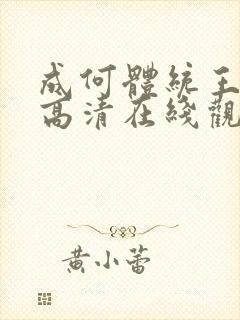 成何體統王
高清在綫觀
黄小蕾